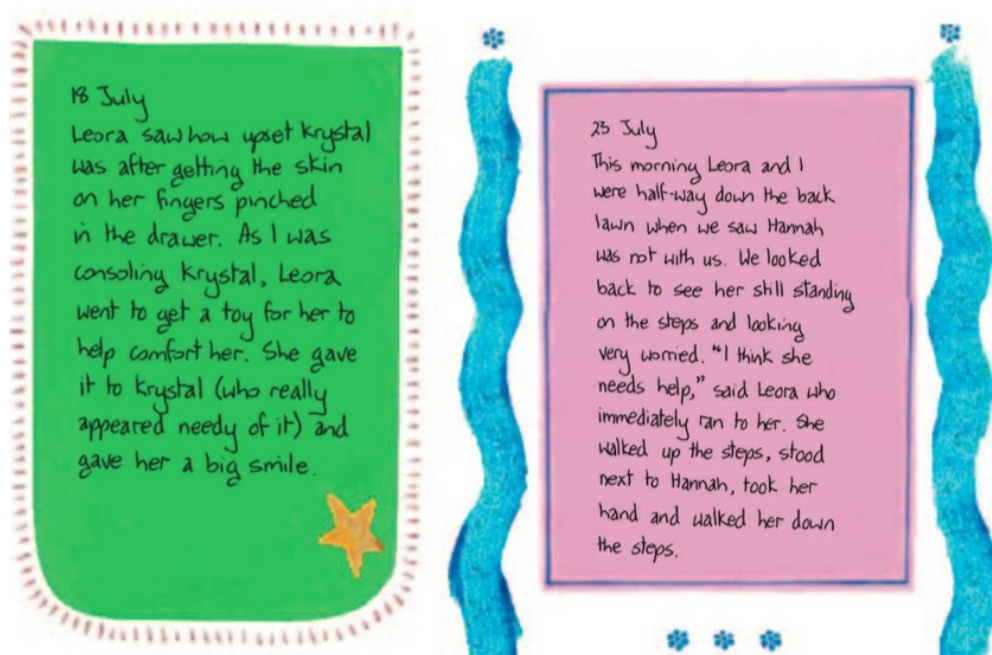 18 July
Leora saw how upset Krystal
was after getting the skin
on her fingers pinched
in the drawer. As I was
consoling Krystal, Leora
went to get a toy for her to
help comfort her. She gave
it to Krystal (who really
appeared needy of it) and
gave her a big smile.
23 July
This morning Leora and I
were half-way down the back
lawn when we saw Hannah
was not with us. We looked
back to see her still standing
on the steps and looking
very worried. "I think she
needs help," said Leora who
immediately ran to her. She
walked up the steps, stood
next to Hannah, took her
hand and walked her down
the steps.